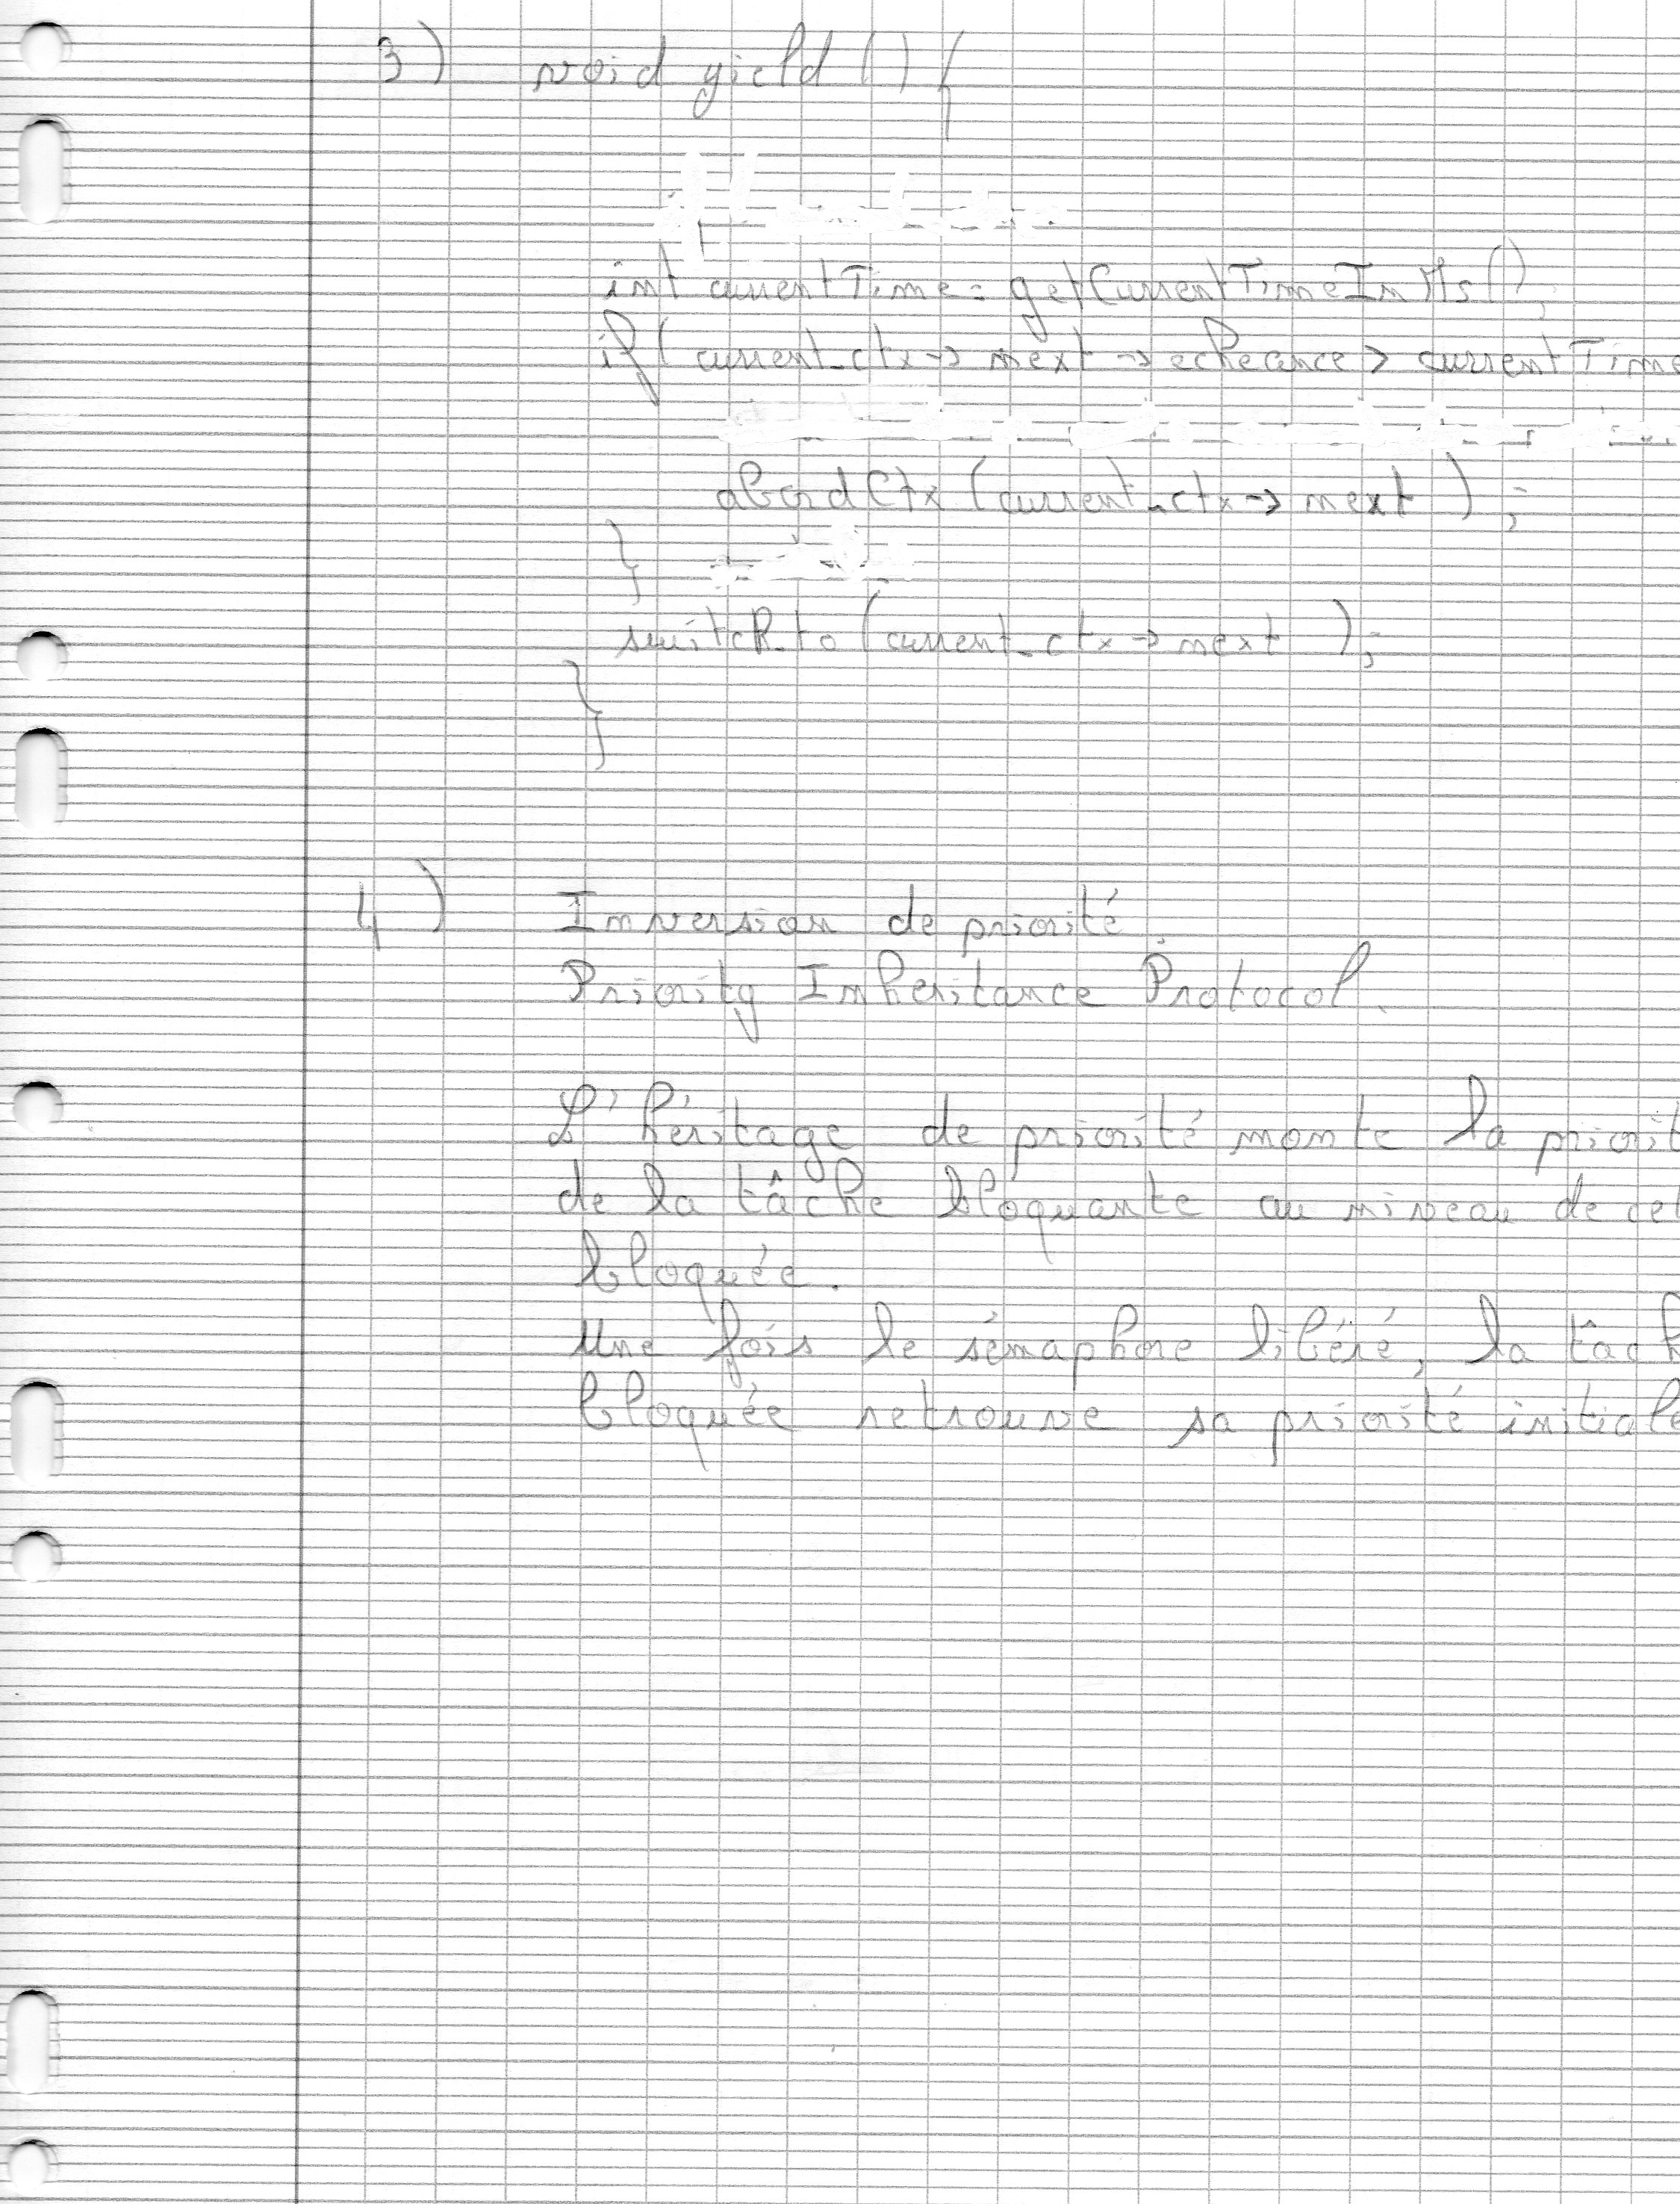 3) void yield () {
int currentTime = getCurrentTimeInMs();
if (current_ctx -> next -> echeance > currentTime
abordCtx (current_ctx -> next ) ;
}
switch_to (current_ctx -> next ) ;
}
4) Inversion de priorité
Priority Inheritance Protocol.
L'héritage de priorité monte la priorit
de la tâche bloquante au niveau de cel
bloquée.
Une fois le sémaphore libéré, la tâch
bloquée retrouve sa priorité initiale